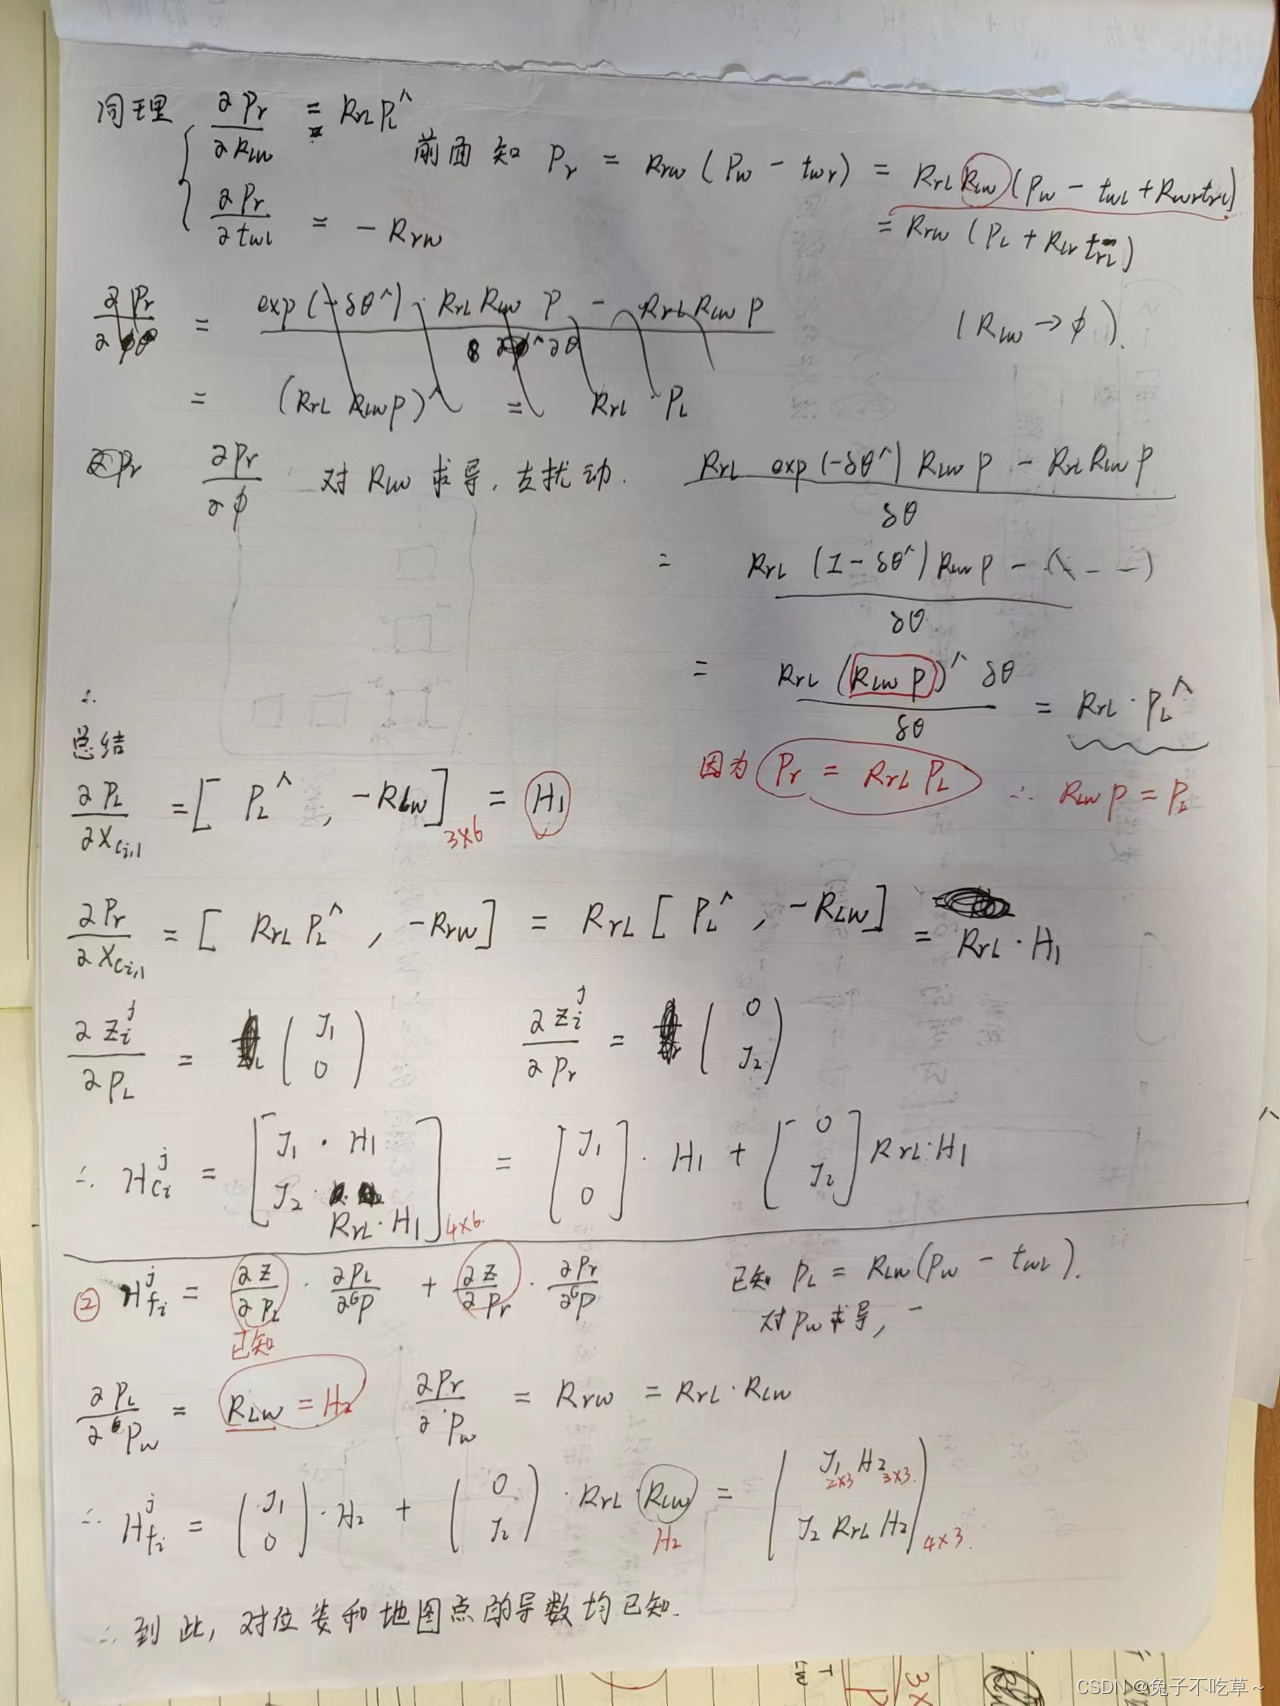 同理 ∂Pr/∂RLW = RrL PL^
前面知 Pr = Rrw (Pw - twr) = RrL RLw (Pw - twL + Rwr trL)
∂Pr/∂twL = - Rrw
= Rrw (PL + RLr trL)
∂Pr/∂θ = exp(-δθ^) · RrL RLw P - RrL RLw P / ∂θ
(RLw → φ).
= (RrL RLw P)^ = RrL PL
∂Pr/∂φ 对 RLW 求导, 左扰动.
RrL exp(-δθ^) RLW P - RrL RLW P / δθ
= RrL (I - δθ^) RLW P - (- - -) / δθ
= RrL (RLW P)^ δθ / δθ = RrL · PL^
因为 Pr = RrL PL ∴ RLW P = PL
∴
总结
∂PL/∂XCi,1 = [ PL^ , -RLW ] 3×6 = H1
∂Pr/∂XCi,1 = [ RrL PL^ , -Rrw ] = RrL [ PL^ , -RLW ] = RrL · H1
∂Zi^j/∂PL = ( J1 0 ) ∂Zi^j/∂Pr = ( 0 J2 )
∴ HCi^j = [ J1 · H1 J2 · RrL · H1 ] 4×6 = [ J1 0 ] · H1 + [ 0 J2 ] RrL · H1
② Hfi^j = ∂Z/∂PL · ∂PL/∂GP + ∂Z/∂Pr · ∂Pr/∂GP
已知 PL = RLW (Pw - twL).
已知
对 Pw 求导, -
∂PL/∂GPw = RLW = H2 ∂Pr/∂Pw = Rrw = RrL · RLW
∴ Hfi^j = ( J1 0 ) · H2 + ( 0 J2 ) · RrL · RLW = ( J1 H2 J2 RrL H2 ) 4×3
2×3 3×3
H2
∴ 到此, 对位姿和地图点的导数均已知.
CSDN @兔子不吃草~